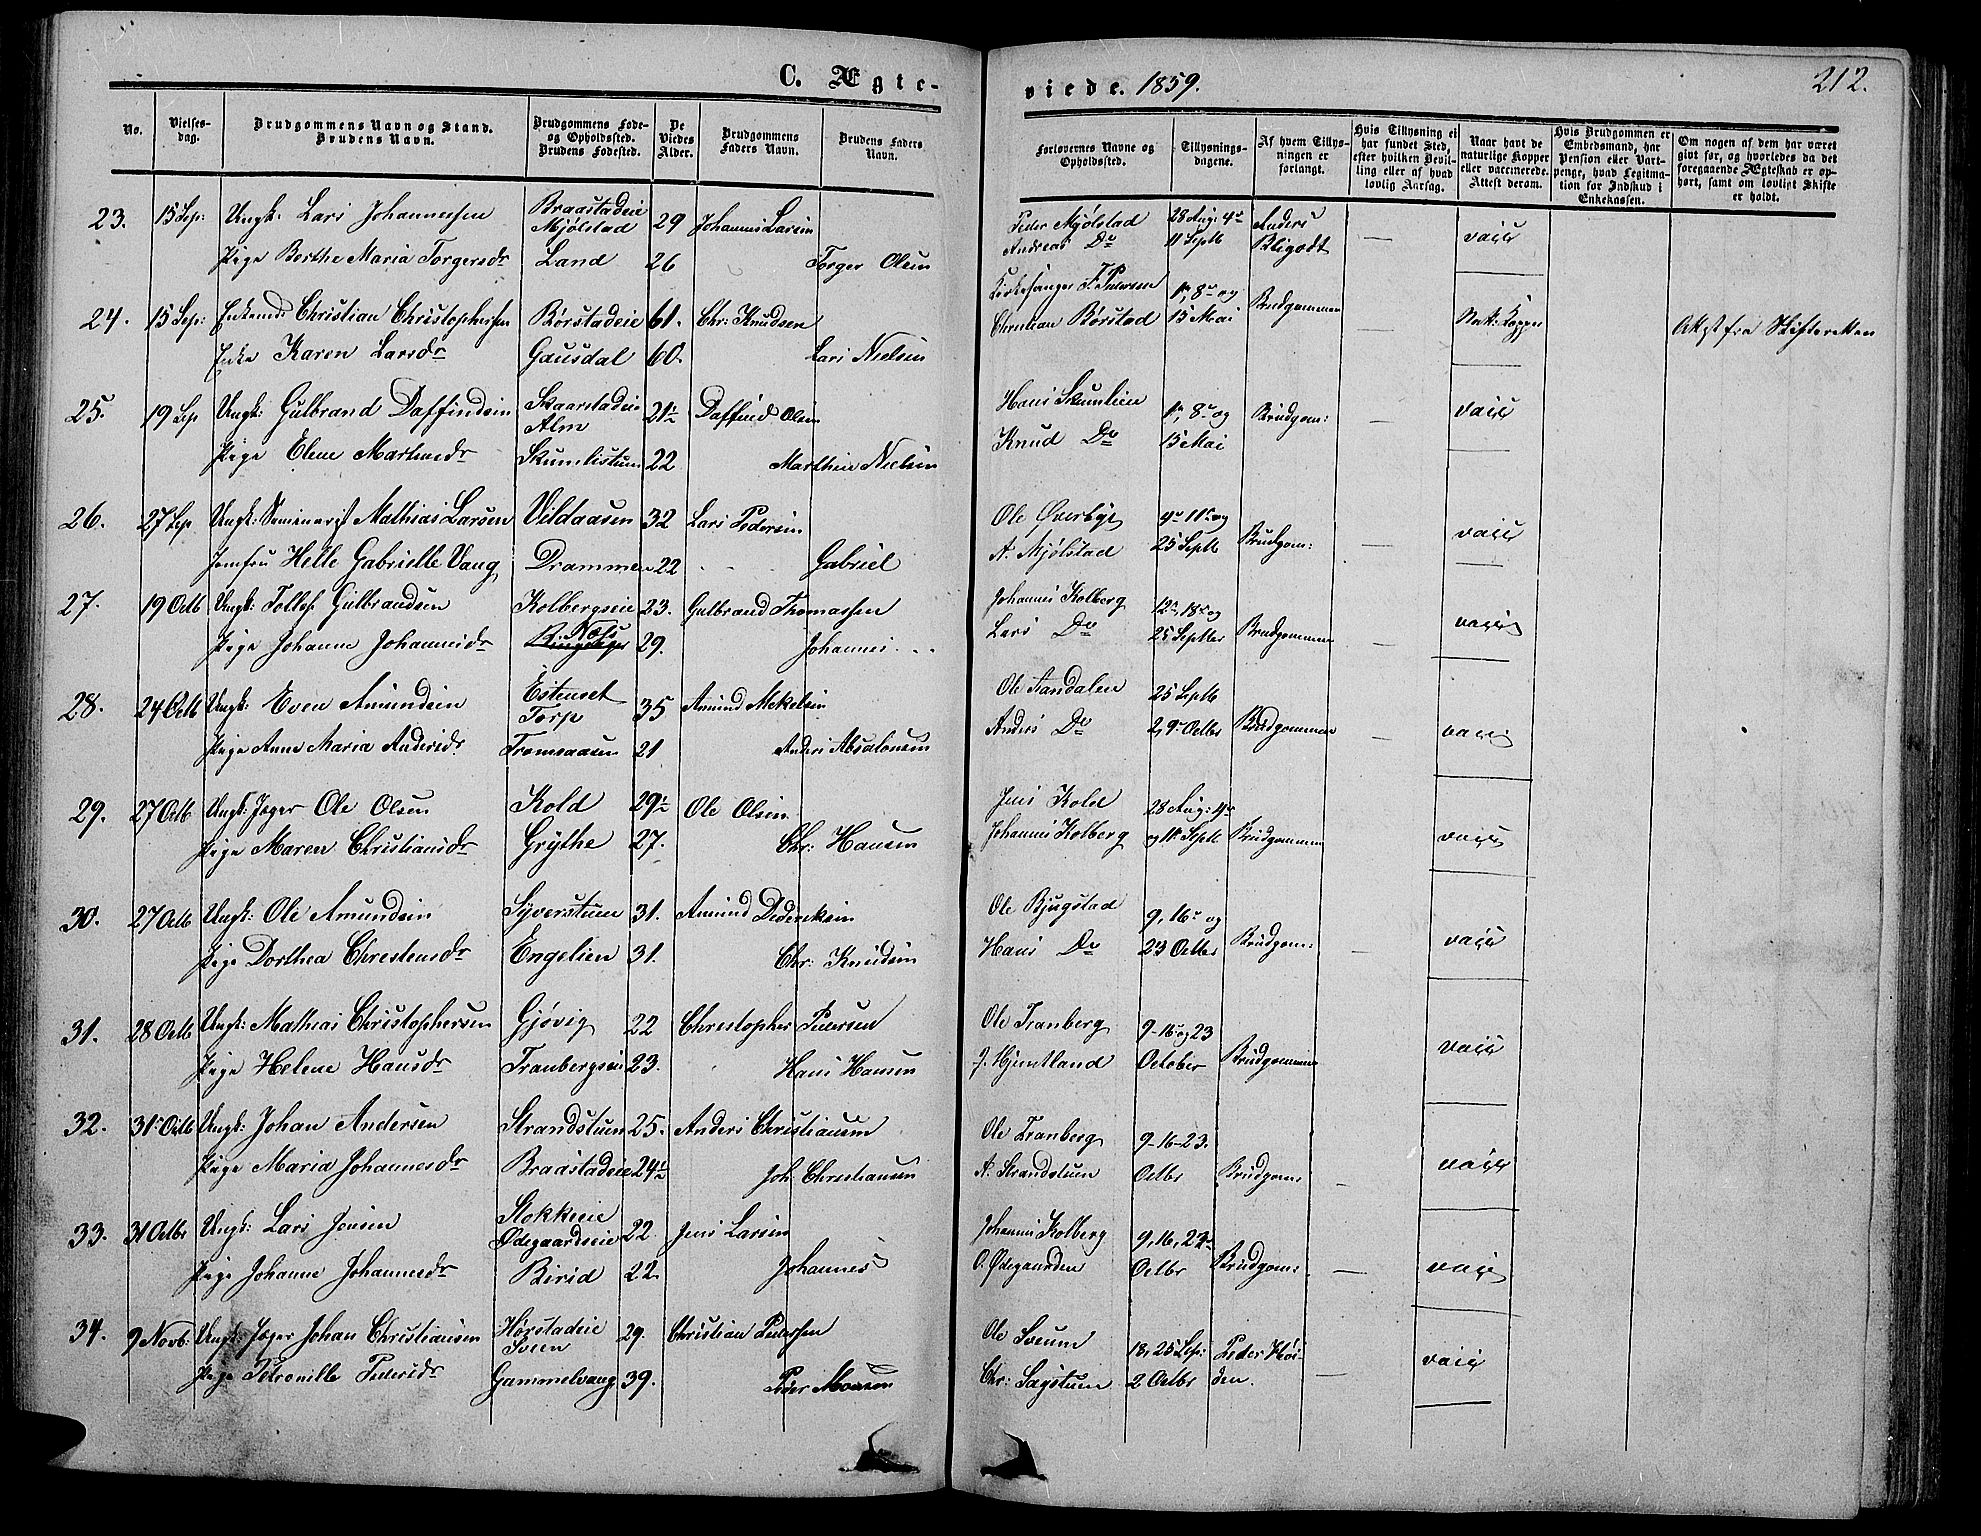 C. Ægte-
No.
Vielses-
dag.
Brudgommens Navn og Stand.
Brudens Navn.
Brudgommens Føde-
og Opholdssted.
Brudens Fødested.
De
Viedes
Alder.
Brudgommens
Faders Navn.
Brudens Faders
Navn.
23. 15 Sep: Ungk: Lars Johannessen Braastadeie Mjølstad 29 Johannes Larsen
Pige Berthe Maria Torgersdr Land 26 Torger Olsen
24. 15 Sep: Enkemd Christian Christophersen Børstadeie 61. Chr: Knudsen
Enke Karen Larsdr Gausdal 60. Lars Nielsen
25. 19 Sep Ungk: Gulbrand Daffindsen Skaarstadeie Alm 21½ Daffind Olsen
Pige Elene Martensdr Skumlistuen 22 Marthin Nielsen
26. 27 Sep Ungk: Seminarist Mathias Larsen Vildaasen 32 Lars Pedersen
Jomfru Helle Gabrielle Vang Drammen 22 Gabriel
27. 19 Octb Ungk: Tollef Gulbrandsen Kolbergseie 23. Gulbrand Thomassen
Pige Johanne Johannesdr Næs 29. Johannes
28. 24 Octb Ungk: Even Amundsen Estenset Torp 35 Amund Mekelsen
Pige Anne Maria Andersdr Tromsaasen 21 Anders Absalonsen
29. 27 Octb Ungk: Jæger Ole Olsen Kold 29½ Ole Olsen
Pige Maren Christiansdr Grythe 27. Chr: Hansen
30. 27 Octb Ungk: Ole Amundsen Syverstuen 31. Amund Dedericksen
Pige Dorthea Christensdr Engelien 31. Chr: Knudsen
31. 28 Octb Ungk: Mathias Christophersen Gjøvig 22 Christopher Pedersen
Pige Helene Hansdr Tranbergseie 23. Hans Hansen
32. 31 Octb Ungk: Johan Andersen Strandstuen 25. Anders Christiansen
Pige Maria Johannesdr Braastadeie 24½ Joh. Christiansen
33. 31 Octbr Ungk: Lars Jensen Stokkeie Ødegaardseie 22 Jens Larsen
Pige Johanne Johannesdr Birid 22. Johannes
34. 9 Novb: Ungk: Jæger Johan Christiansen Hørstadeie Sveen 29. Christian Pedersen
Pige Petronille Pedersdr Gammelvang 39. Peder Monsen
viede. 1859.
212.
Forlovernes Navne og
Opholdssted.
Tillysnings-
dagene.
Af hvem Tillys-
ningen er
forlangt.
Hvis Tillysning ei
har fundet Sted,
efter hvilken Bevil-
ling eller af hvad
lovlig Aarsag.
Naar havt de
naturlige Kopper
eller vaccinerede.
Attest derom.
Hvis Brudgommen er
Embedsmand, har
Pension eller Vart-
penge, hvad Legitma-
tion for Indskud i
Enkekassen.
Om nogen af dem har været
givt før, og hvorledes da det
foregaaende Ægteskab er op-
hørt, samt om lovligt Skifte
er holdt.
Peder Mjølstad 28 Aug: 4de Anders
Andreas Do 11 Septb Bligodt — vacc
Kirkesanger Pedersen 1ste, 8de og Brudgommen
Christian Børstad 15 Mai — Nat: Kopper Attest fra Skifteretten
Hans Skumlien 1ste, 8de og Brudgom: — vacc
Knud Do 15 Mai
Ole Øverbye 4de 11te og
A. Mjølstad 25 Septb Brudgom: — vacc
Johannes Kolberg 12te, 18de og
Lars Do 25 Septbr Brudgommen — vacc
Ole Aandalen 25 Septb
Anders Do 2, 9de Octbr Brudgommen — vacc
Jens Kold 28 Aug: 4de
Johannes Kolberg og 11 Septb Brudgommen vacc
Ole Bjugstad 9, 16de og
Hans Do 23 Octbr Brudgom: — vacc
Ole Tranberg 9-16 og 23
J. Hjemtland October Brudgommen vacc
Ole Tranberg 9-16-23.
A. Strandstuen Octbr Brudgom: vacc
Johannes Kolberg 9, 16, 23de
O. Ødegaarden Octbr Brudgom: — vacc
Ole Sveum 18, 25 Sep: Peder Hoi-
Chr: Sagstuen 2 Octbr den. — vacc